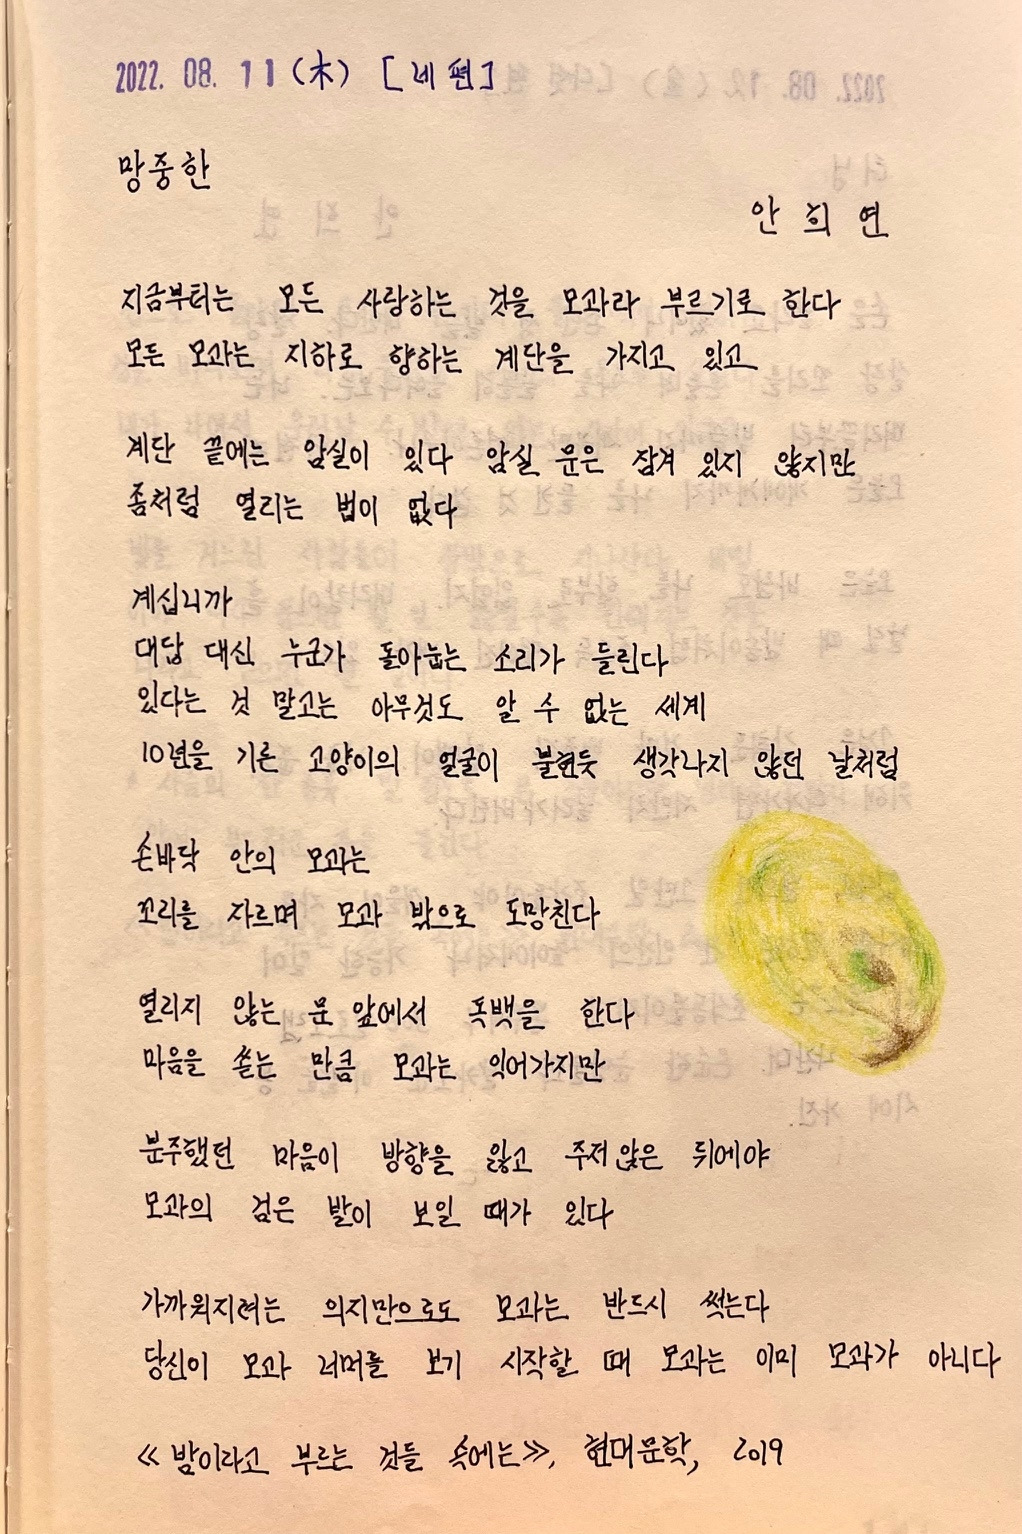 2022. 08. 11 (木) [네 편]
망중한
안 희 연
지금부터는 모든 사랑하는 것을 모과라 부르기로 한다
모든 모과는 지하로 향하는 계단을 가지고 있고
계단 끝에는 암실이 있다 암실 문은 잠겨 있지 않지만
좀처럼 열리는 법이 없다
계십니까
대답 대신 누군가 돌아눕는 소리가 들린다
있다는 것 말고는 아무것도 알 수 없는 세계
10년을 기른 고양이의 얼굴이 불현듯 생각나지 않던 날처럼
손바닥 안의 모과는
꼬리를 자르며 모과 밖으로 도망친다
열리지 않는 문 앞에서 독백을 한다
마음을 쏟는 만큼 모과는 익어가지만
분주했던 마음이 방향을 잃고 주저앉은 뒤에야
모과의 검은 발이 보일 때가 있다
가까워지려는 의지만으로도 모과는 반드시 썩는다
당신이 모과 너머를 보기 시작할 때 모과는 이미 모과가 아니다
≪밤이라고 부르는 것들 속에는≫, 현대문학, 2019